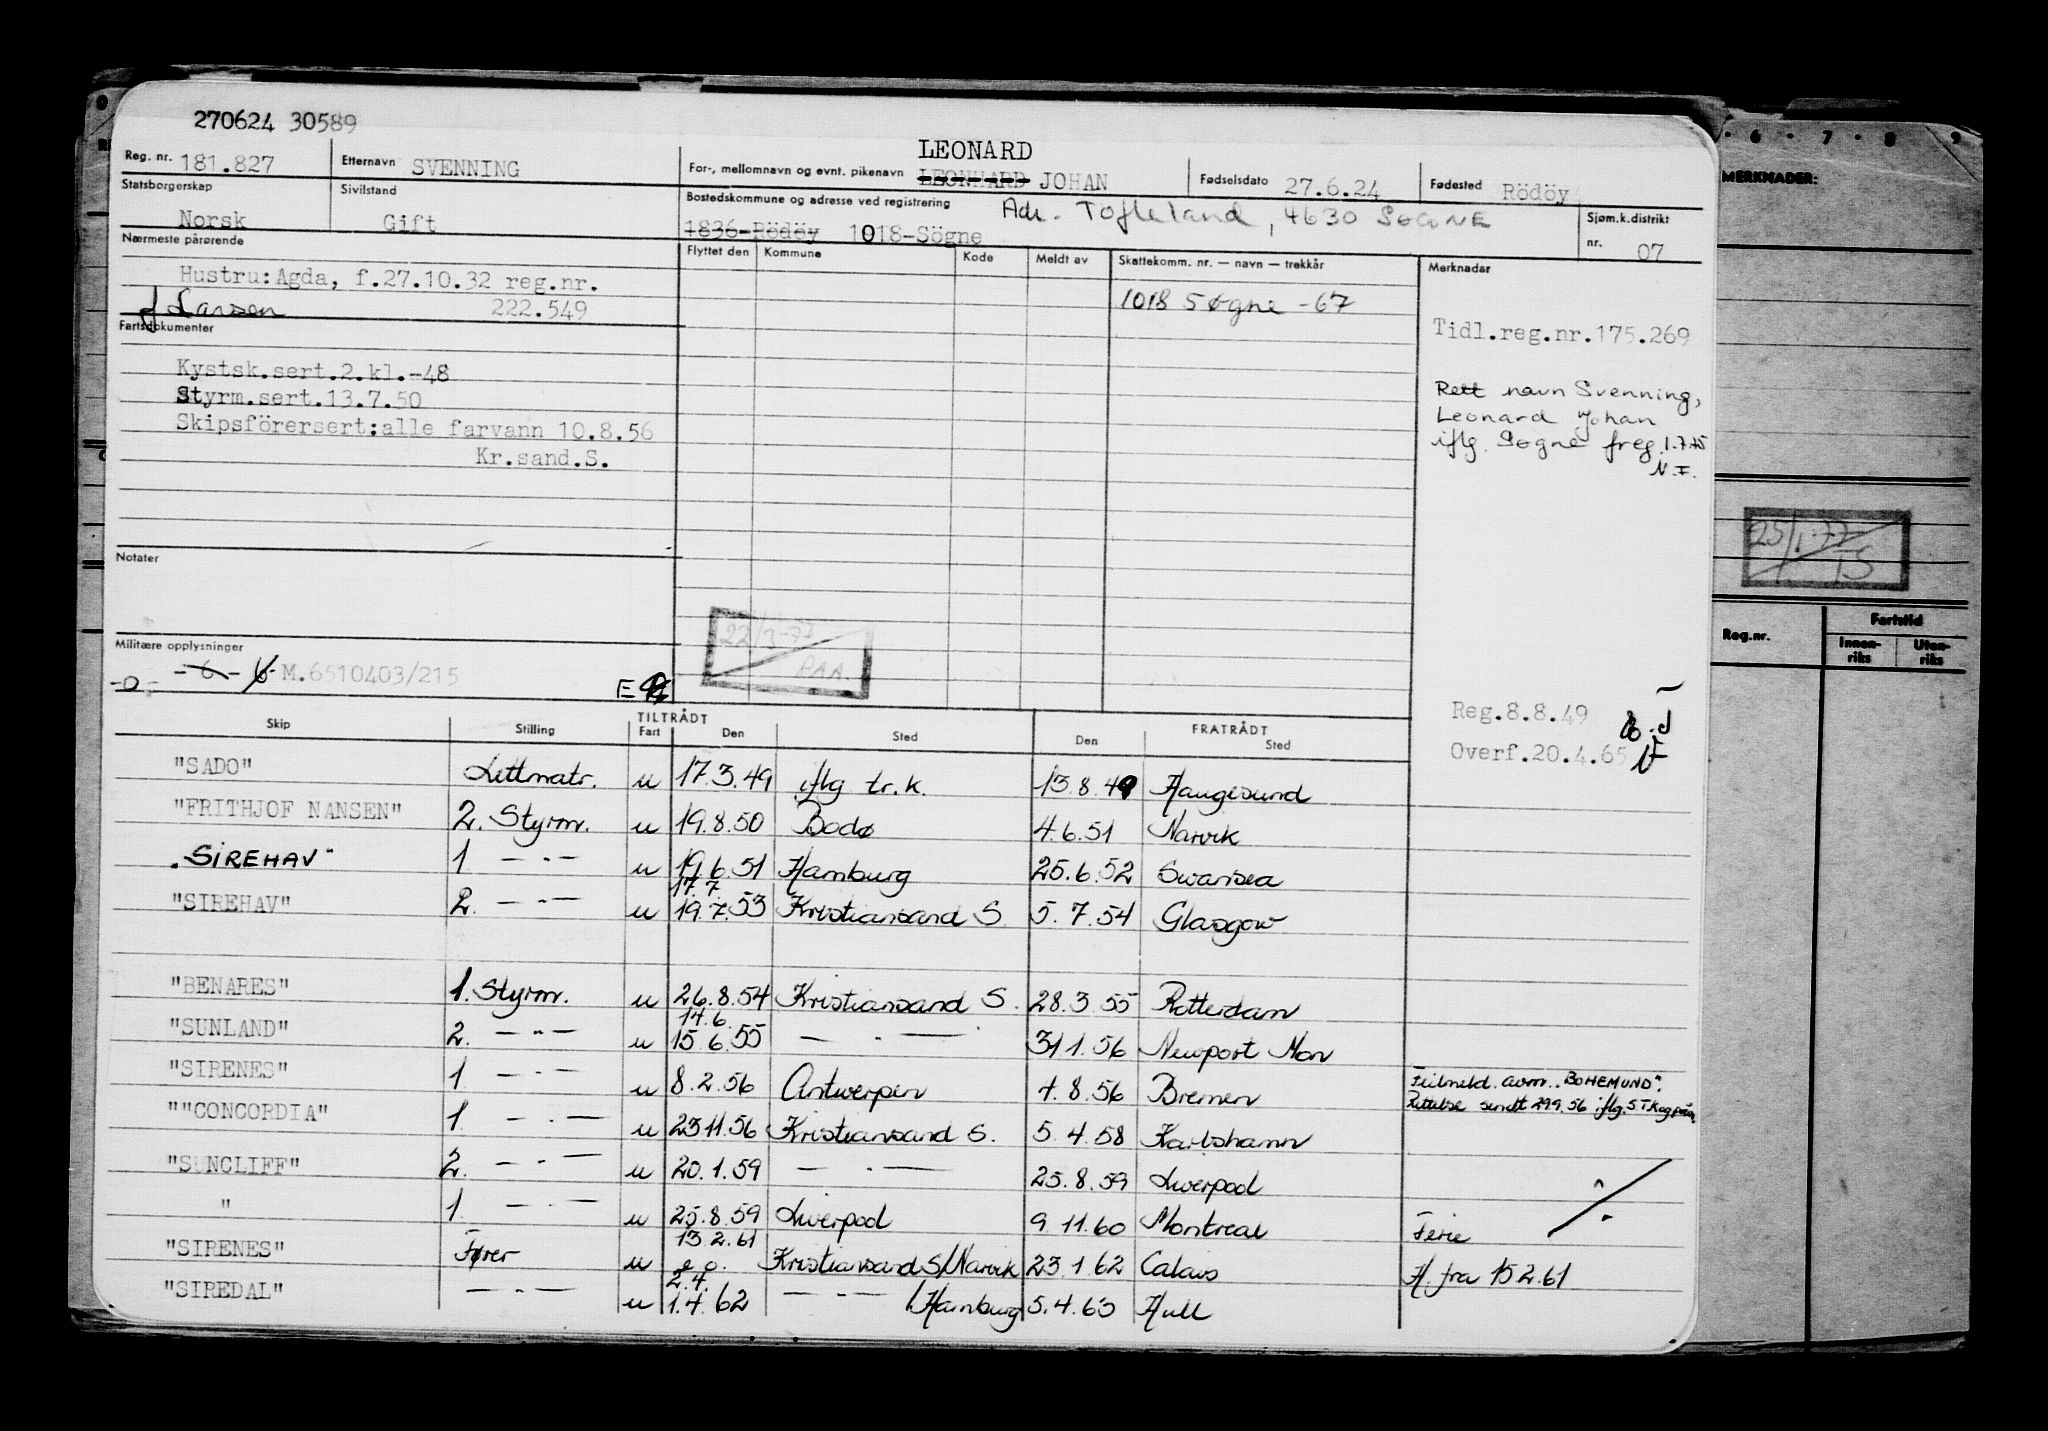 270624 30589
Reg. nr. 181.827 Etternavn SVENNING For-, mellomnavn og evnt. pikenavn LEONARD LEONHARD JOHAN Fødselsdato 27.6.24 Fødested Rödöy
Statsborgerskap Norsk Sivilstand Gift Bostedskommune og adresse ved registrering 1836-Rödöy 1018-Sögne Adr. Tofteland, 4630 SØGNE Sjøm.k.distrikt nr. 07
Nærmeste pårørende Flyttet den Kommune Kode Meldt av Skattekomm. nr. — navn — trekkår Merknader
Hustru:Agda, f.27.10.32 reg.nr.
f Larsen 222.549
1018 Søgne -67
Tidl.reg.nr.175.269
Fartsdokumenter
Kystsk.sert.2.kl.-48
Styrm.sert.13.7.50
Skipsförersert:alle farvann 10.8.56
Kr.sand.S.
Rett navn Svenning,
Leonard Johan
iflg. Søgne freg. 1.7.75
N.F.
Notater
22/3-77
PAA.
Militære opplysninger
-o- -6- M.6510403/215 E
Reg.8.8.49
Overf.20.4.65
Skip Stilling TILTRÅDT Fart Den Sted FRATRÅDT Den Sted
"SADO" Lettmatr. u 17.3.49 iflg tr.k. 13.8.49 Haugesund
"FRITHJOF NANSEN" 2. Styrm. u 19.8.50 Bodø 4.6.51 Narvik
"SIREHAV" 1 — " — u 19.6.51 Hamburg 25.6.52 Swansea
17.7.
"SIREHAV" 2. — " — u 19.7.53 Kristiansand S. 5.7.54 Glasgow
"BENARES" 1. Styrm. u 26.8.54 Kristiansand S. 28.3.55 Rotterdam
14.6.
"SUNLAND" 2. — " — u 15.6.55 — " — 31 1.56 Newport Mon
"SIRENES" 1 — " — u 8.2.56 Antwerpen 7.8.56 Bremen Feilmeld. avm. "BOHEMUND".
Rettelse sendt 29 9.56 iflg.
""CONCORDIA" 1. — " — u 23 11.56 Kristiansand S. 5.4.58 Karlshamn
"SUNCLIFF" 2. — " — u 20.1.59 — " — 25.8.59 Liverpool
" 1. — " — u 25.8.59 Liverpool 9.11.60 Montreal Ferie
13.2.61
"SIRENES" Fører u e.o. Kristiansand S/Narvik 23.1.62 Calais H. fra 15 2.61
2.4.
"SIREDAL" — " — u 1.4.62 — " — /Hamburg 5.4.63 Hull
6 7 8 9
MERKNADER:
25/1-77
TS
Reg.nr. Fartstid
Innen-riks Uten-riks